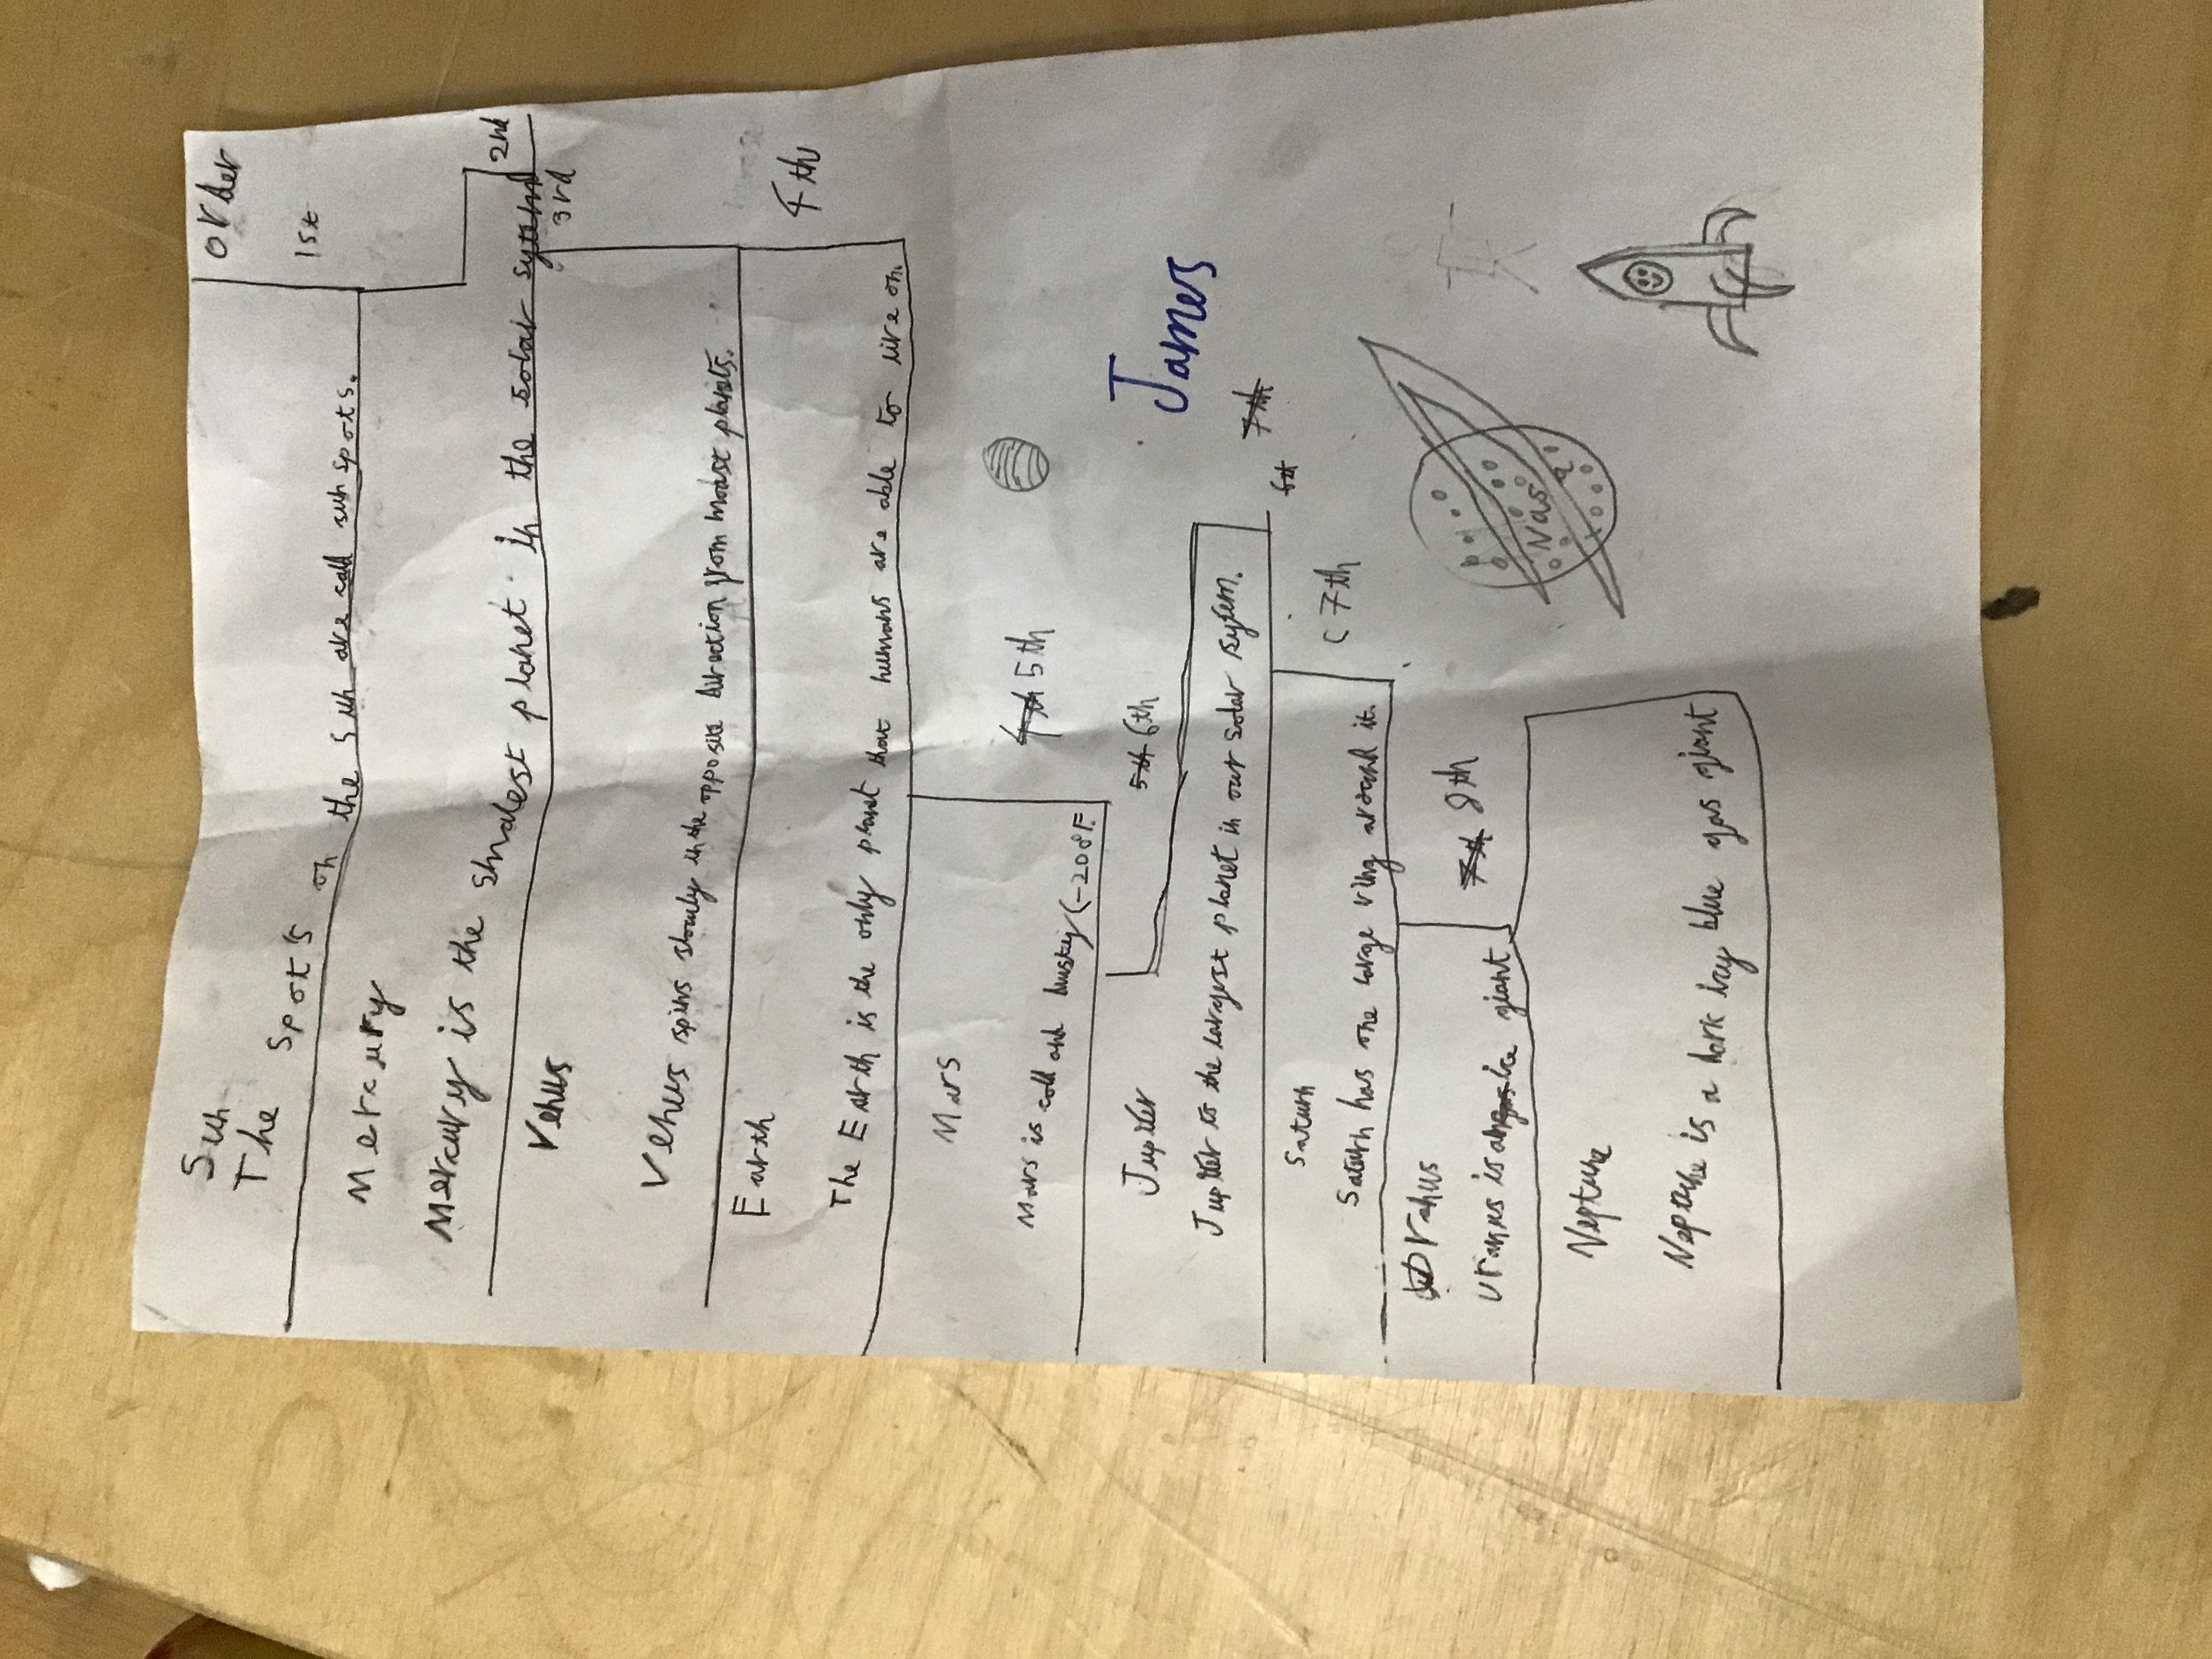 order
Sun
1st
The spots on the sun are call sun spots.
Mercury
2nd
Mercury is the smalest planet in the solar sytem
3rd
Venus
Venus spins slowly in the opposite direction from moast planits.
Earth
4th
The Earth is the only planet that humans are able to live on.
Mars
4th 5th
Mars is cold and (-208F.
James
Jupiter
5th 6th
Jupiter to the largest planet in our solar system.
6th 7th
Saturn
7th
Saturn has one large ring around it.
Uranus
7th 8th
Uranus is an gas ice giant
Nasa
Neptune
Neptune is a blue gas giant